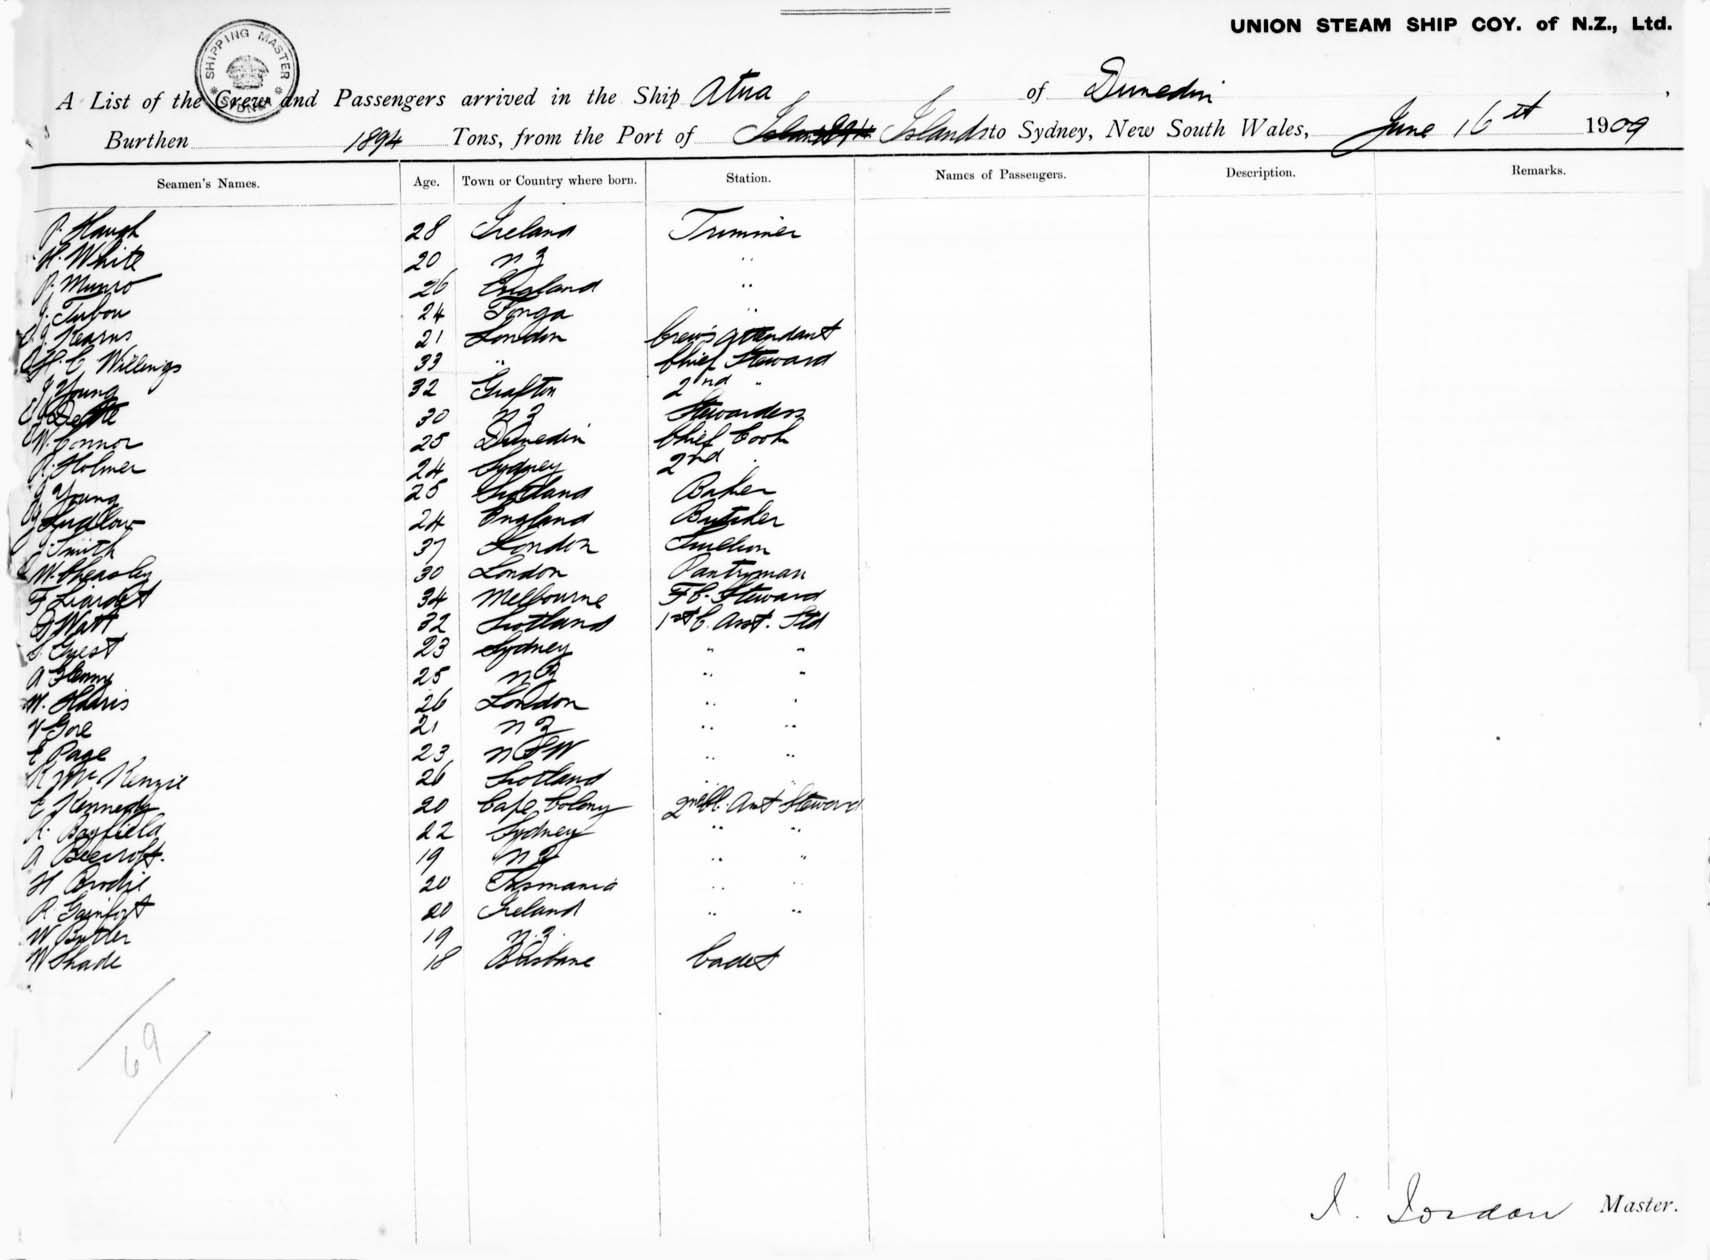 UNION STEAM SHIP COY. of N.Z., Ltd.
SHIPPING MASTER
A List of the Crew and Passengers arrived in the Ship Atua of Dunedin
Burthen 1894 Tons, from the Port of Islands to Sydney, New South Wales, June 16 1909
Seamen's Names. Age. Town or Country where born. Station. Names of Passengers. Description. Remarks.
P. Haugh 28 Ireland Trimmer
H. White 20 NZ "
P. Munro 26 England "
J. Tubou 24 Tonga "
J. Kearns 21 London Crew's Attendant
H. C. Willings 33 " Chief Steward
J. Young 32 Grafton 2nd "
30 NZ Stewardess
W. Connor 25 Dunedin Chief Cook
P. Holmer 24 Sydney 2nd "
J. Young 25 Scotland Baker
Ludlow 24 England Butcher
J. Smith 37 London Scullion
W. Cheasley 30 London Pantryman
F Liardet 34 Melbourne F.C. Steward
D Watt 32 Scotland 1st C. Asst. Std
S. Guest 23 Sydney " "
A 25 NZ " "
W. Harris 26 London " "
V Gore 21 NZ " "
E Page 23 NSW " "
K McKenzie 26 Scotland " "
E Kennedy 20 Cape Colony 2nd Cl. Asst Steward
R. Bayfield 22 Sydney " "
A Beecroft. 19 NZ " "
H Brodie 20 Tasmania " "
R. Gainfort 20 Ireland " "
W Butler 19 N.Z.
W Shade 18 Brisbane Cadet
69
I. Jordan Master.